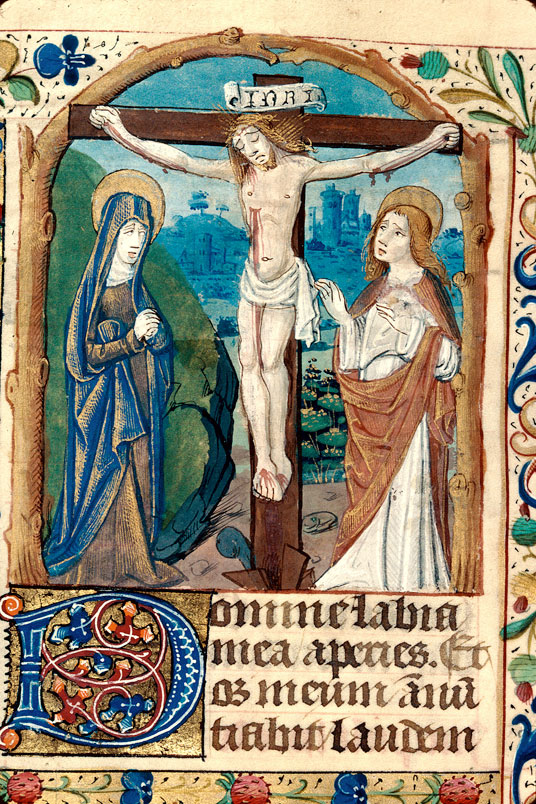 INRI
Domine labia
mea aperies. Et
os meum ānū
tiabit laudem